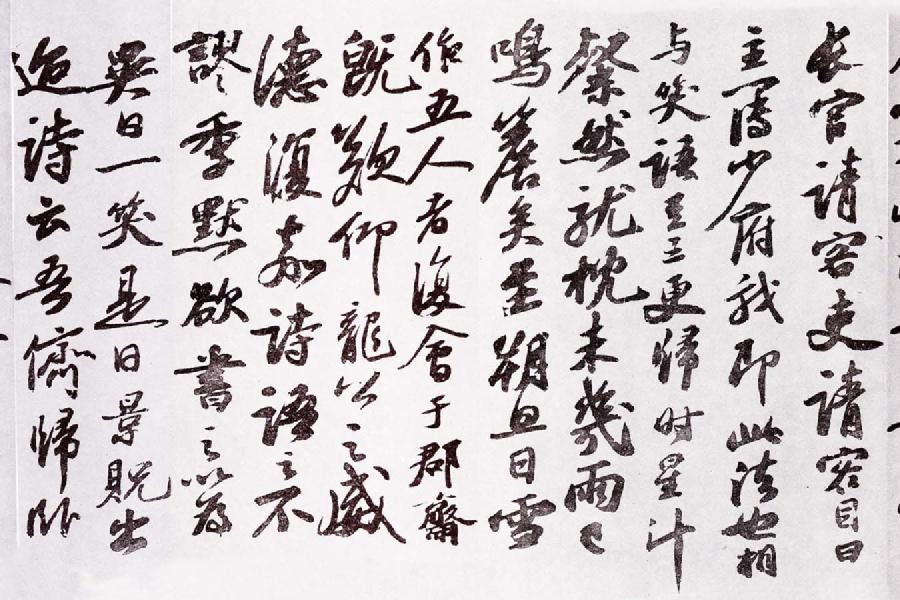 長官請客吏請客目曰
主簿少府我即此法也相
与笑語至三更歸时星斗
粲然就枕未幾雨已
鳴簷矣至朔旦日雪
作五人者復會于郡齋
既歎仰龍公之威
德復嘉詩語之不
謬季默欲書之以為
異日一笑是日景貺出
迨詩云吾儕歸臥